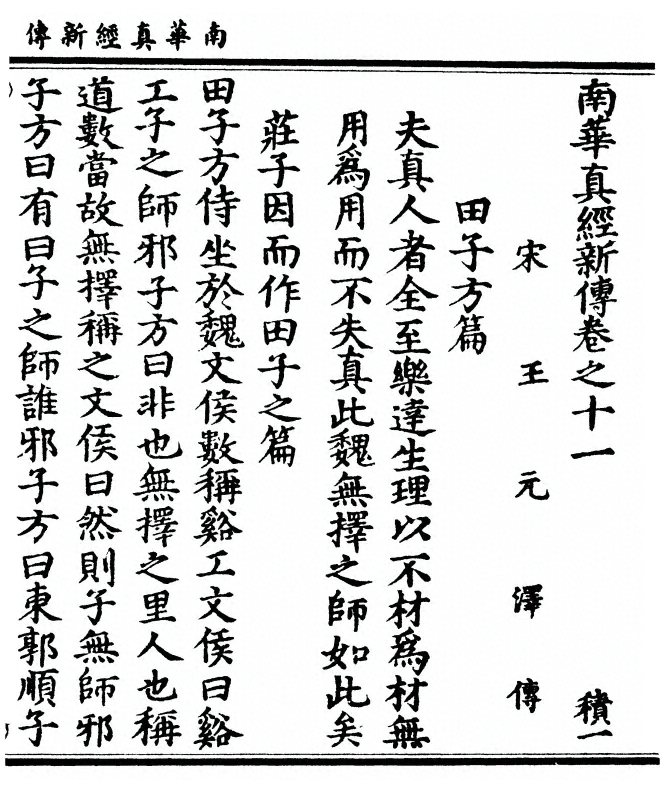 南華真經新傳
南華真經新傳卷之十一 積一
宋王元澤傳
田子方篇
夫真人者全至樂達生理以不材爲材無
用爲用而不失真此魏無擇之師如此矣
莊子因而作田子之篇
田子方侍坐於魏文侯數稱谿工文侯曰谿
工子之師邪子方曰非也無擇之里人也稱
道數當故無擇稱之文侯曰然則子無師邪
子方曰有曰子之師誰邪子方曰東郭順子